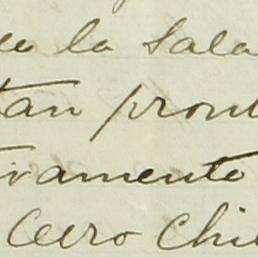 la Sala
tan pront
ivamente
Cero Chi